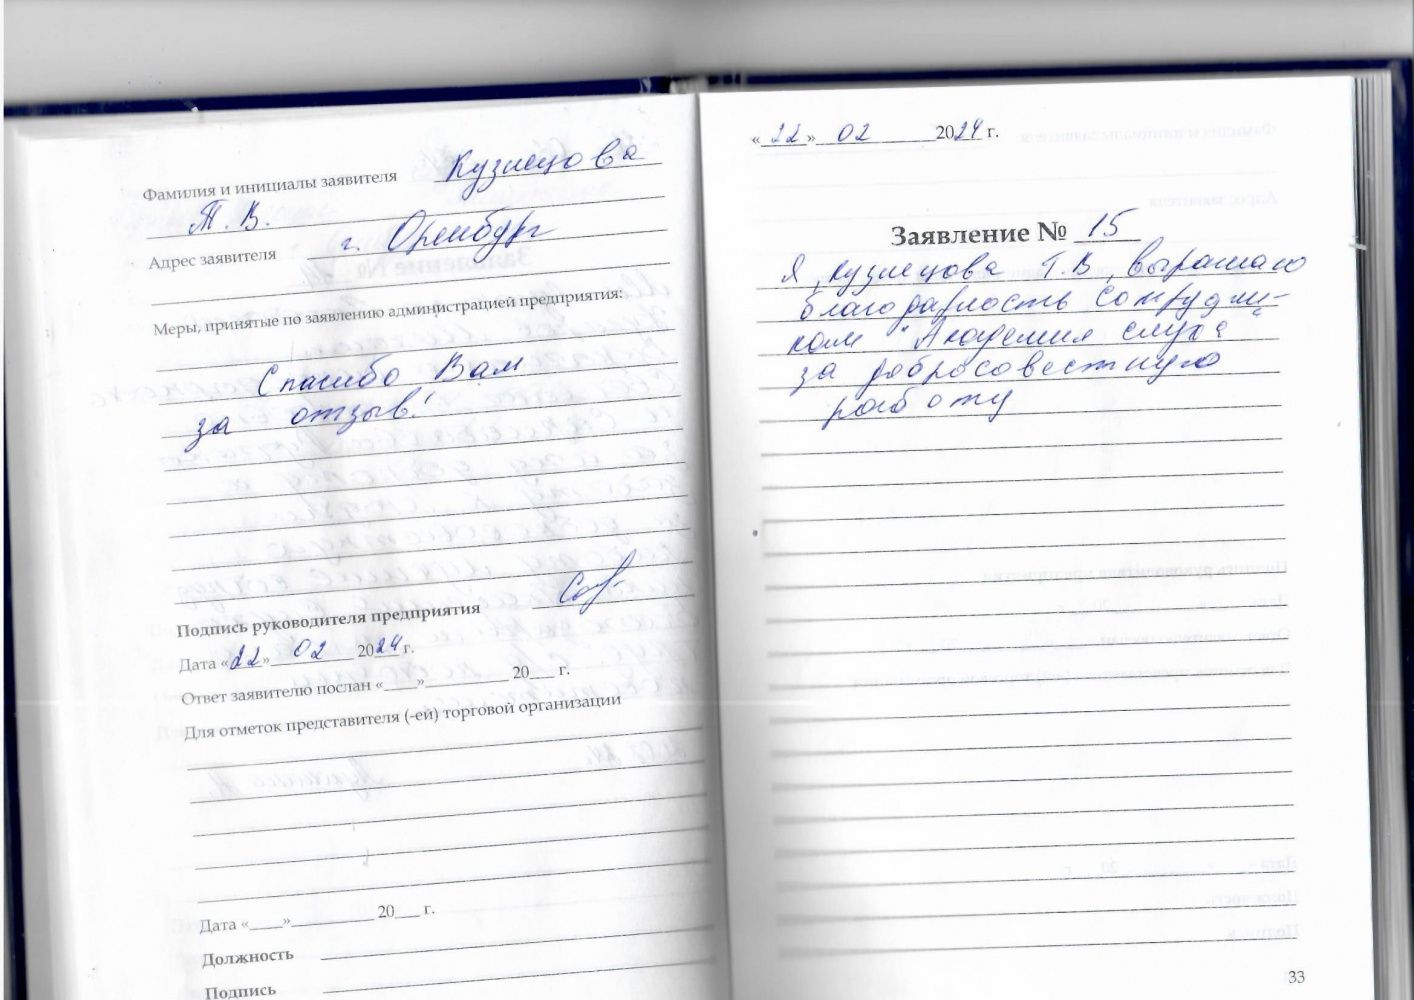 Фамилия и инициалы заявителя Кузнецова
Т. В.
Адрес заявителя г. Оренбург
Меры, принятые по заявлению администрацией предприятия:
Спасибо Вам
за отзыв!
Подпись руководителя предприятия
Дата «22» 02 2024 г.
Ответ заявителю послан «____»__________ 20___ г.
Для отметок представителя (-ей) торговой организации
Дата «____»__________ 20___ г.
Должность
Подпись
«22» 02 2024 г.
Заявление № 15
Я, Кузнецова Т.В, выражаю
благодарность сотрудни-
кам "Академия слуха"
за добросовестную
работу
33